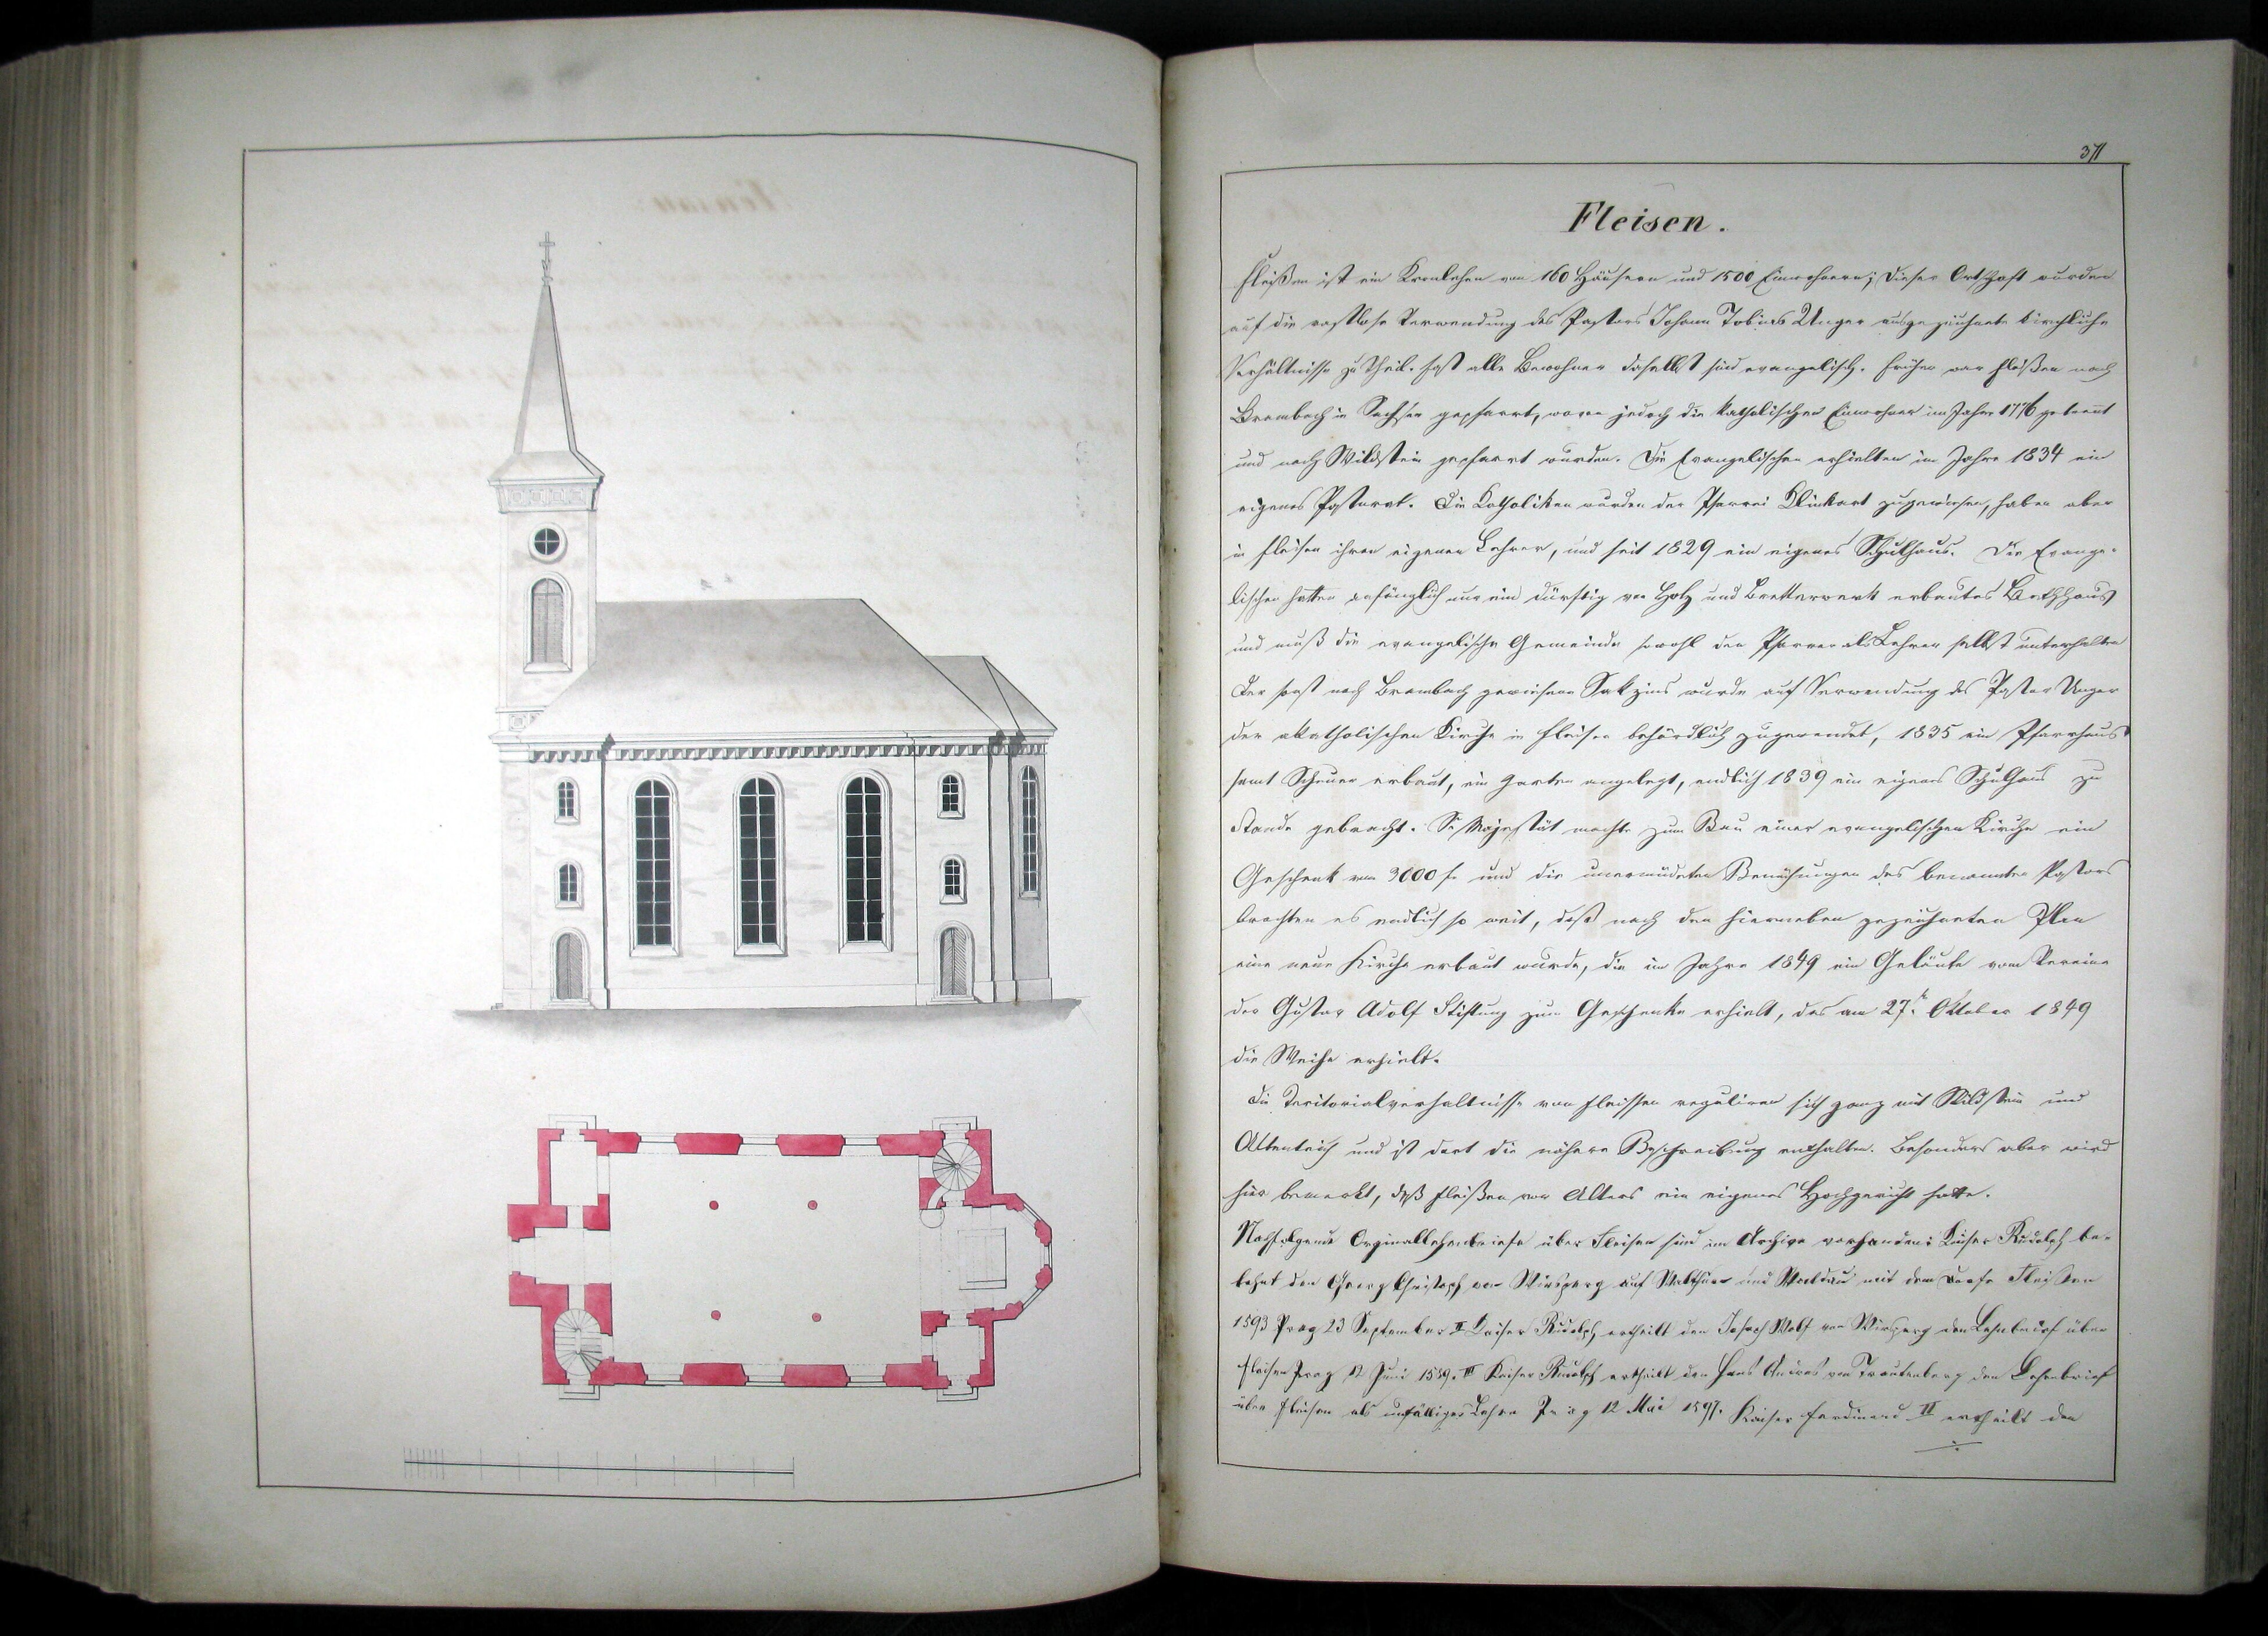 371
Fleisen.
Fleißen ist ein Kronlehen von 160 Häusern und 1500 Einwohnern; dieser Ortschaft wurden
auf die rastlose Verwendung des Pastors Johann Tobias Unger ausgezeichnete kirchliche
Verhältnisse zu Theil. Fast alle Bewohner daselbst sind evangelisch. Früher war Fleißen nach
Brambach in Sachsen gepfarrt, wovon jedoch die katholischen Einwohner im Jahre 1776 getrennt
und nach Wildstein gepfarrt wurden. Die Evangelischen erhielten im Jahre 1834 ein
eigenes Pastorat. Die Katholiken wurden der Pfarrei Klinkart zugewiesen, haben aber
in Fleisen ihren eigenen Lehrer, und seit 1829 ein eigenes Schulhaus. Die Evange-
lischen hatten anfänglich nur ein dürftig von Holz und Bretterwerk erbautes Bethhaus
und muß die evangelische Gemeinde sowohl den Pfarrer als Lehrer selbst unterhalten
Der sonst nach Brambach gewiesene Sakzins wurde auf Verwendung des Pastor Unger
der akatholischen Kirche in Fleisen behördlich zugewendet, 1835 ein Pfarrhaus
samt Scheuer erbaut, ein Garten angelegt, endlich 1839 ein eigenes Schulhaus zu
Stande gebracht. Se Majestät machte zum Bau einer evangelischen Kirche ein
Geschenk von 3000 f. und die unermüdeten Bemühungen des benannten Pastors
brachten es endlich so weit, daß nach den hierneben gezeichneten Plan
eine neue Kirche erbaut wurde, die im Jahre 1849 ein Geläute vom Vereine
der Gustav Adolf Stiftung zum Geschenke erhielt, das am 27t. Oktober 1849
die Weihe erhielt.
Die Teritorialverhaltnisse von Fleissen reguliren sich ganz mit Wildstein und
Altenteich und ist dort die nähere Beschreibung enthalten. Besonders aber wird
hier bemerkt, daß Fleißen von Alters ein eigenes Hochgericht hatte.
Nachfolgende Orginallehenbriefe über Fleisen sind im Archive vorhanden: Kaiser Rudolph be-
lehnt den Georg Christoph von Wirsperg auf und mit dem Dorfe Fleissen
1593 Prag 23 September II Kaiser Rudolph ertheilt den Wolf von Wirsperg den Lehenbrief über
Fleisen Prag 12 Juni III Kaiser Rudolph ertheilt den Hans Andreas von Trautenberg den Lehenbrief
über Fleisen als Lehen Prag 12 Mai 1597. Kaiser Ferdinand II ertheilt den